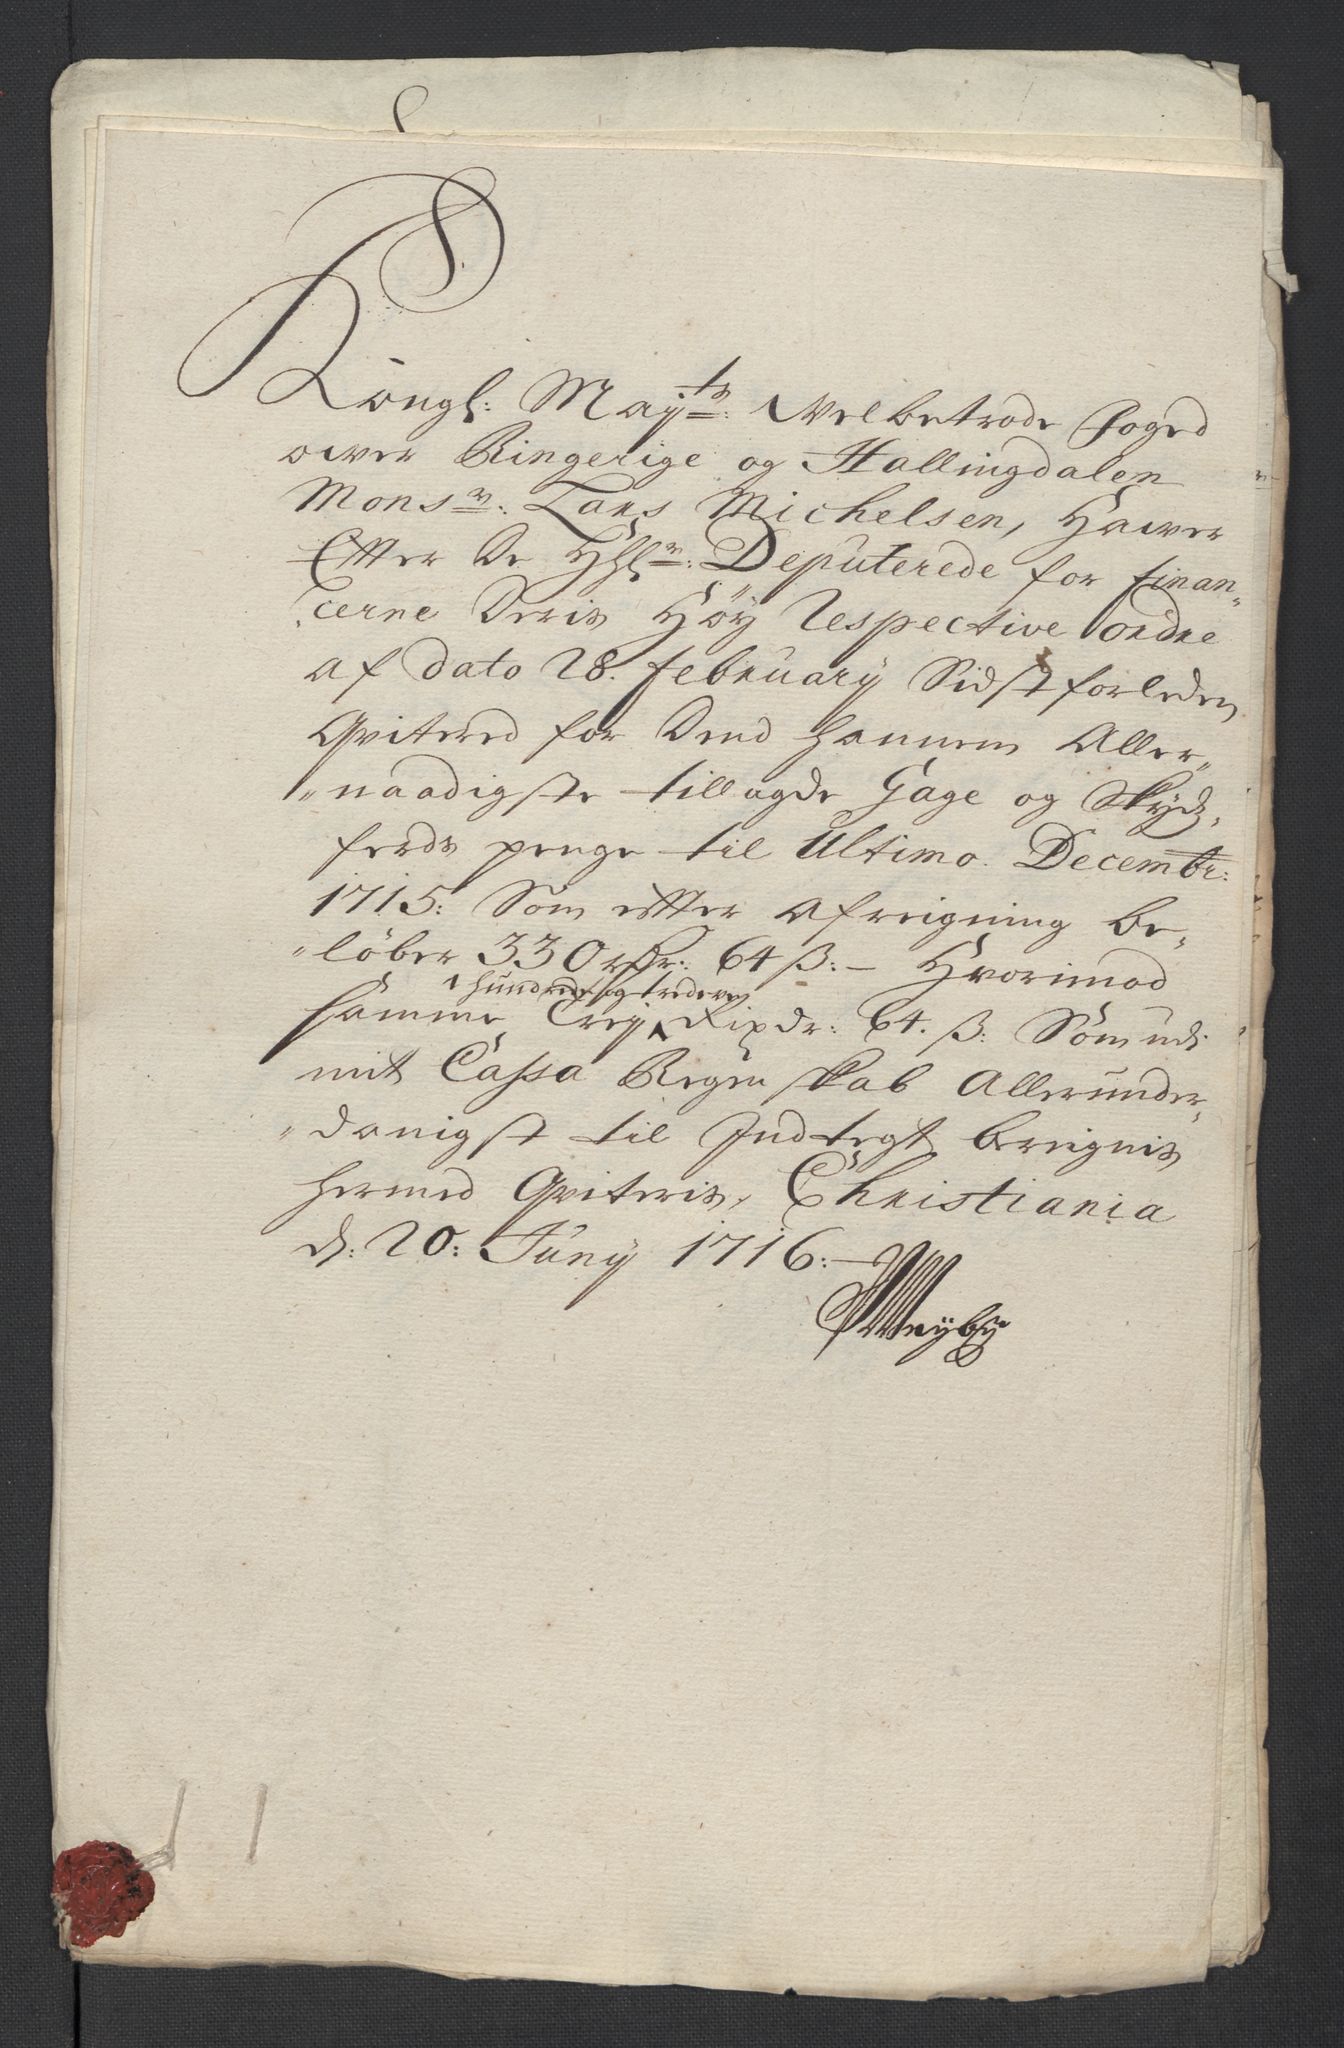 Kongl: Maÿts: Welbetrode Foged
ower Ringerige og Hallingdalen
Monsr: Lars Michelsen, Hawer
Efter De Hhl:r: Deputerede for finan-
cerne Deris Höÿ Respective ordre
af dato 28. februarÿ Sidstforleden
Qvitered for Dend hannem Aller-
naadigste tillagde Gage og Skÿdz-
ferds penge til Ultimo Decembr:
1715: Som efter afreigning be-
løber 330 rdr: 64 ß: - Hvorimod
hundrede og tredeve
samme Treÿ Rixdr: 64. ß: Som udi
mit Cassa Regenskab Allerunder-
danigst til Indtegt bereignis
hermed Qviteris, Christiania
d: 20: Junÿ 1716: -